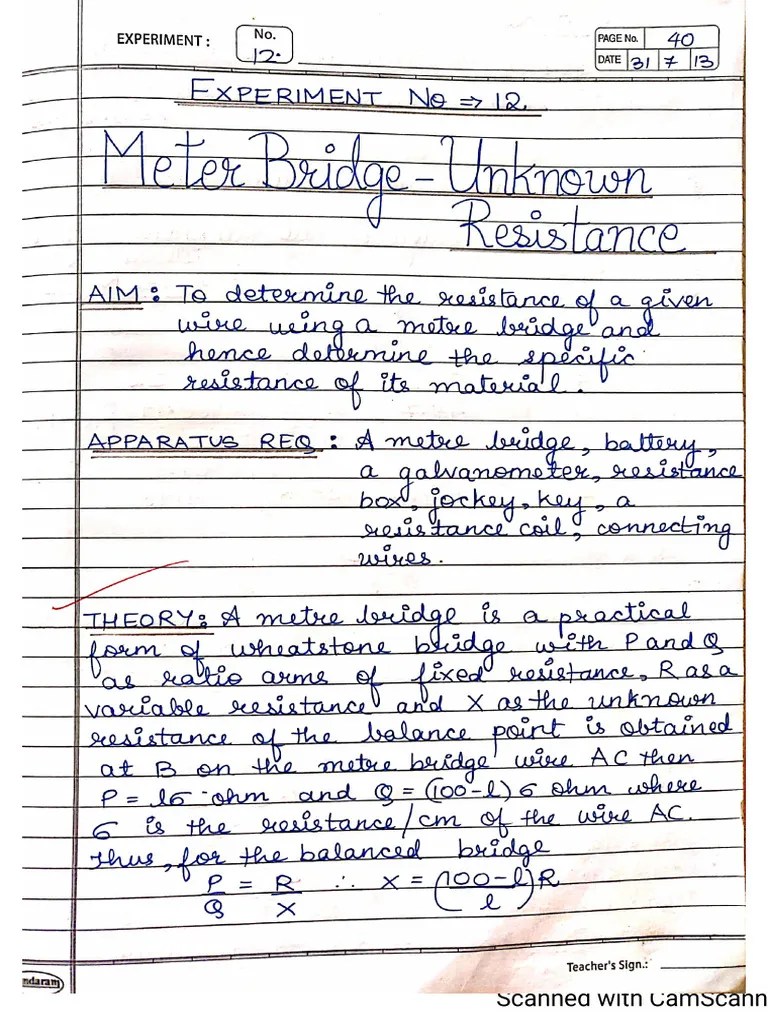 EXPERIMENT : No. 12. PAGE No. 40
DATE 31 7 13
EXPERIMENT NO ⇒ 12.
Meter Bridge - Unknown
Resistance
AIM : To determine the resistance of a given
wire using a metre bridge and
hence determine the specific
resistance of its material.
APPARATUS REQ : A metre bridge, battery,
a galvanometer, resistance
box, jockey, key, a
resistance coil, connecting
wires.
THEORY : A metre bridge is a practical
form of wheatstone bridge with P and Q
as ratio arms of fixed resistance, R as a
variable resistance and X as the unknown
resistance of the balance point is obtained
at B on the metre bridge wire AC then
P = lσ ohm and Q = (100-l) σ ohm where
σ is the resistance/cm of the wire AC.
Thus, for the balanced bridge
P/Q = R/X ∴ X = ((100-l)/l) R
Teacher's Sign.:
ndaram
Scanned with CamScann